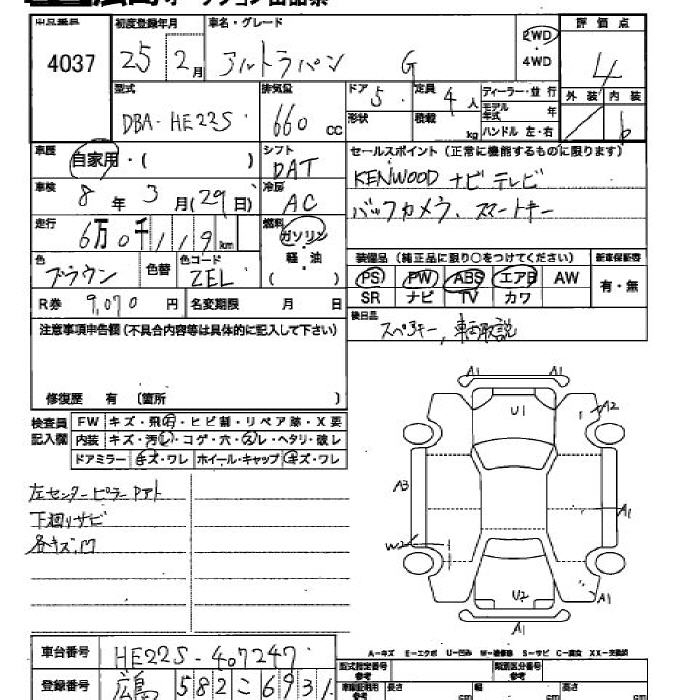 オークション出品票
出品番号 初度登録年月 車名・グレード 評価点
4037 25 2月 アルトラパン G 2WD・4WD 4
型式 排気量 ドア 5 定員 4人 ディーラー・並行 外装 内装
DBA-HE22S 660 CC 形状 積載 kg モデル年式 年 b
ハンドル 左・右
車歴 自家用・( ) シフト DAT セールスポイント(正常に機能するものに限ります)
車検 8年 3月(29日) 冷房 AC KENWOOD ナビ テレビ
走行 6万0千119km 燃料 ガソリン バックカメラ、スマートキー
軽油 ( )
色 ブラウン 色替 色コード ZEL 装備品(純正品に限り○をつけてください) 新車保証書
PS PW ABS エアB AW 有・無
SR ナビ TV カワ
R券 9,070円 名変期限 月 日 後日品
スペアキー, 車両取説
注意事項申告欄(不具合内容等は具体的に記入して下さい)
修復歴 有 〔箇所 〕
検査員記入欄 FW キズ・飛石・ヒビ割・リペア跡・X要
内装 キズ・汚レ・コゲ・穴・スレ・ヘタリ・破レ
ドアミラー キズ・ワレ ホイール・キャップ キズ・ワレ
左センターピラーPアト
下廻リサビ
各キズ凹
A1 A1
U1 A2
A3 A1
W2
U2 A1
A1
A-キズ E-エクボ U-凹み W-補修跡 S-サビ C-腐食 XX-交換済
車台番号 HE22S-407247 型式指定番号 類別区分番号
登録番号 広島 582 こ 6931 長さ cm 幅 cm 高さ cm